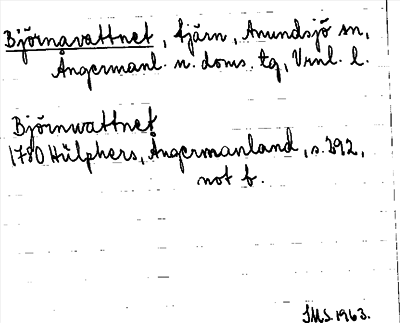 Björnavattnet, tjärn, Anundsjö sn,
Ångermanl. n. doms. tg, Vrnl. l.
Björnwattnet
1780 Hülphers, Ångermanland, s. 292,
not f.
IMS 1963.